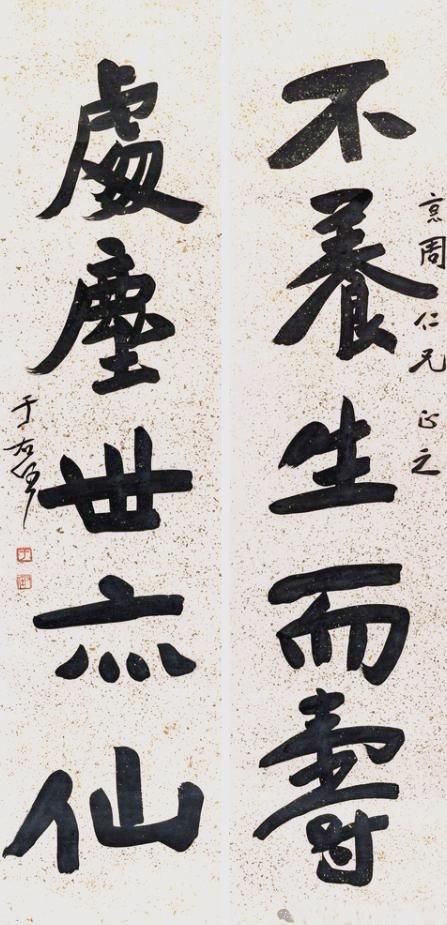 周仁兄 正之
不養生而壽
處塵世亦仙
于右任